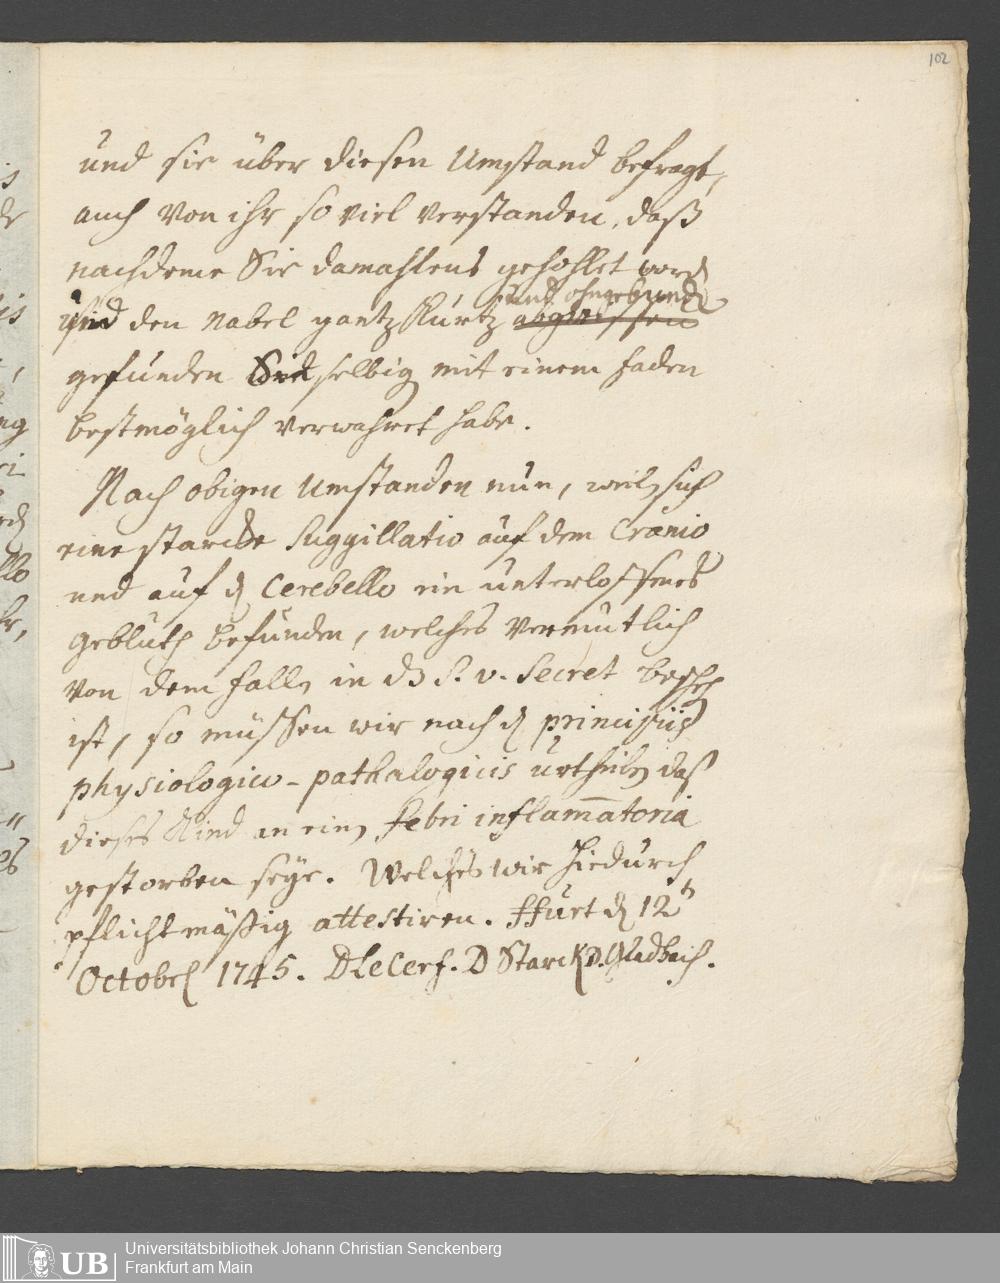 102
und sie über diesen Umstand befragt,
auch von ihr so viel verstanden, daß
nachdeme Sie damahlens gehohlet word
und ohngebunde
und den Nabel gantz Kurtz abgerissen
gefunden Sie selbig mit einem faden
bestmöglich verwahret habe.
Nach obigen Umstanden nun, weilen sich
eine starcke Suggillatio auf dem Cranio
und auf d Cerebello ein unterloffenes
Geblüth befunden, welches Vermutlich
von dem fall in dz S. v. Secret besch
ist, so müssen wir nach d principiis
physiologico-pathalogicis urtheilen daß
dieses Kind an ein Febri inflam̄atoria
gestorben seye. Welches wir hiedurch
pflichtmäßig attestiren. ffurt d 12t
October 1745. DLeCerf. D Starck D. Gladbach.
UB
Universitätsbibliothek Johann Christian Senckenberg
Frankfurt am Main